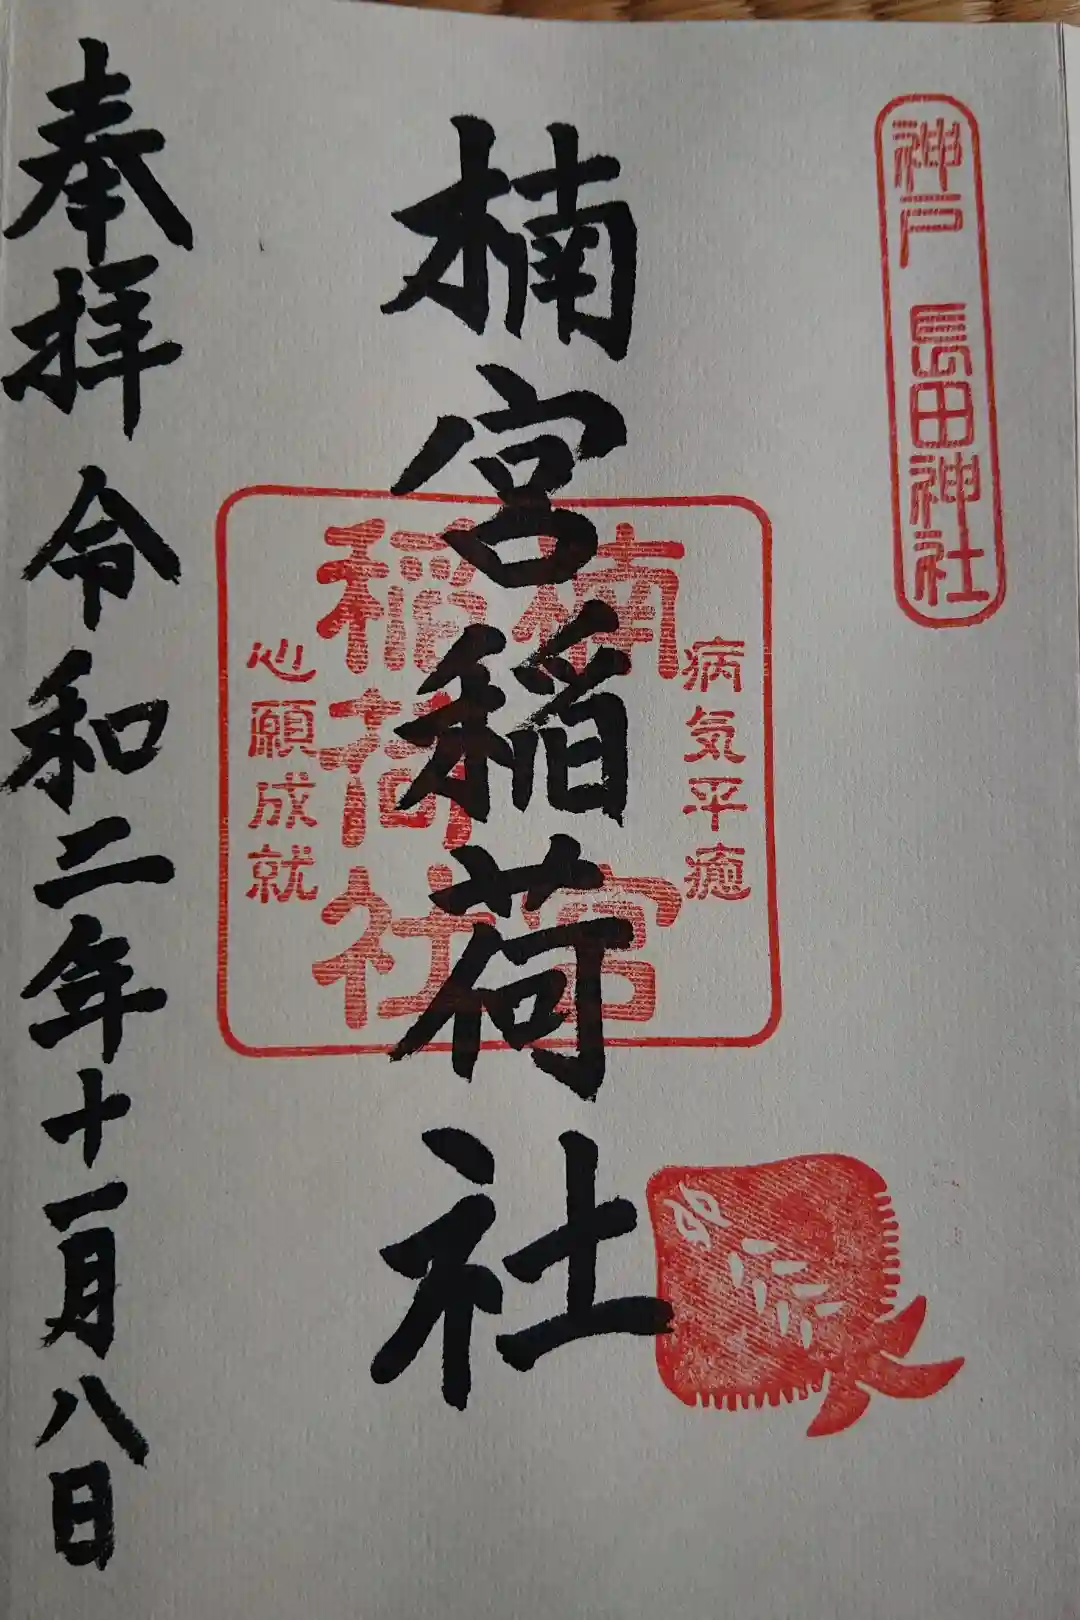 神戸 長田神社
病気平癒
楠宮
稲荷社
心願成就
楠宮稲荷社
奉拝 令和二年十一月八日